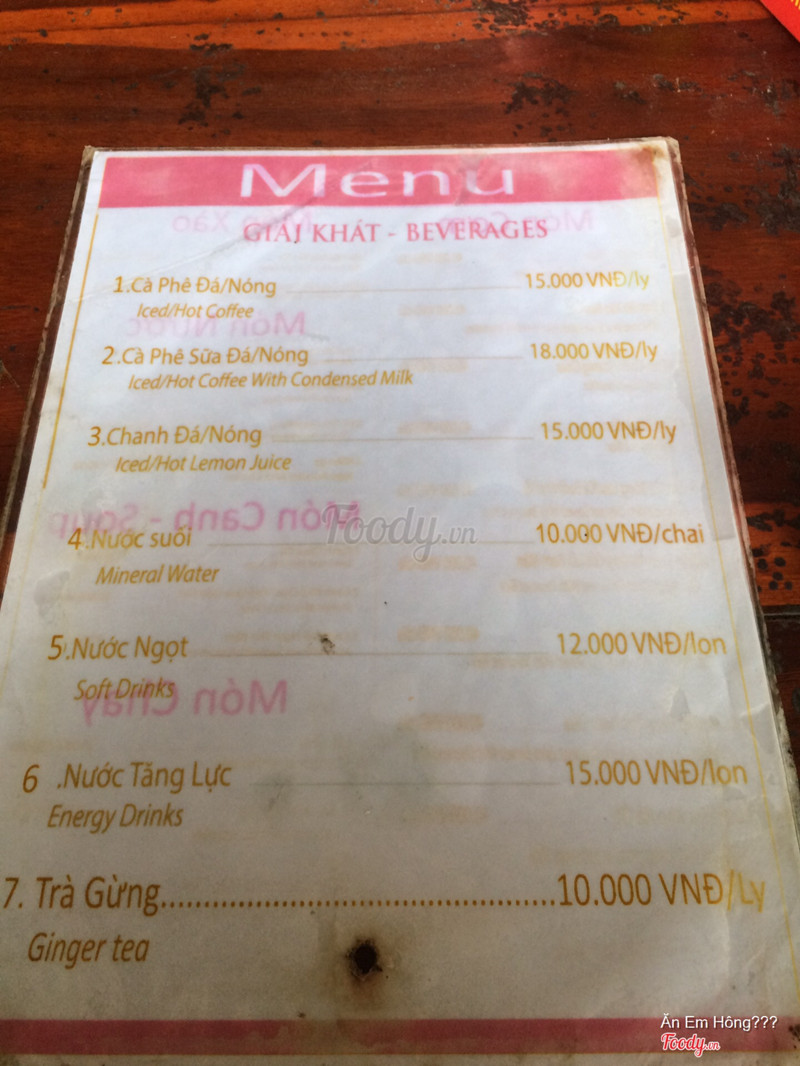 Menu
GIẢI KHÁT - BEVERAGES
1.Cà Phê Đá/Nóng 15.000 VNĐ/ly
Iced/Hot Coffee
2.Cà Phê Sữa Đá/Nóng 18.000 VNĐ/ly
Iced/Hot Coffee With Condensed Milk
3.Chanh Đá/Nóng 15.000 VNĐ/ly
Iced/Hot Lemon Juice
Món Canh - Soup
Foody.vn
4.Nước suối 10.000 VNĐ/chai
Mineral Water
5.Nước Ngọt 12.000 VNĐ/lon
Soft Drinks
Món Chay
6 .Nước Tăng Lực 15.000 VNĐ/lon
Energy Drinks
7. Trà Gừng..............................................10.000 VNĐ/Ly
Ginger tea
Ăn Em Hông???
Foody.vn